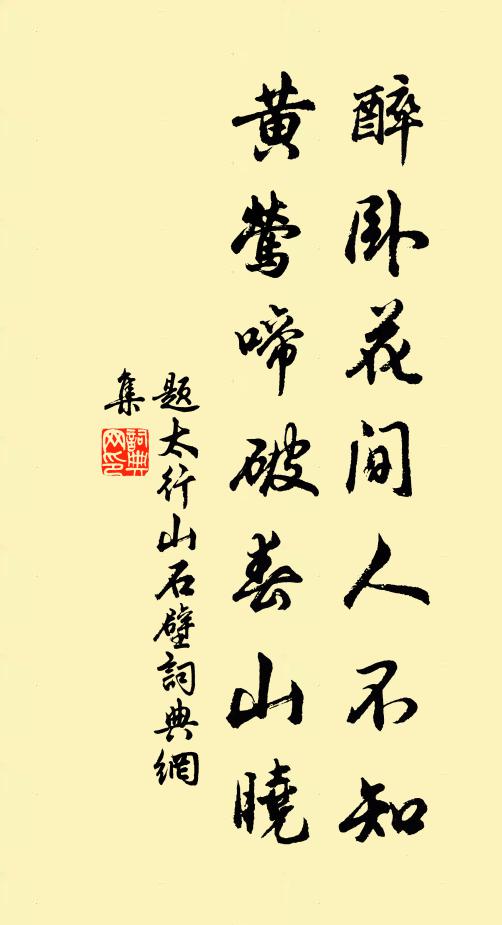 醉卧花间人不知
黄莺啼破春山曉
题太行山石壁詞典網
集
詞典网印